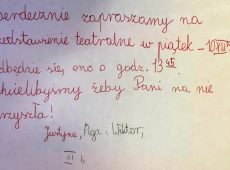 serdecznie zapraszamy na
zedstawienie teatralne w piątek - 10 XII
dbędzie się, ono o godz. 13 45.
chcielibyśmy żeby Pani na nie
rzyszła!
Justyna, Aga i Wiktor,
VI b.